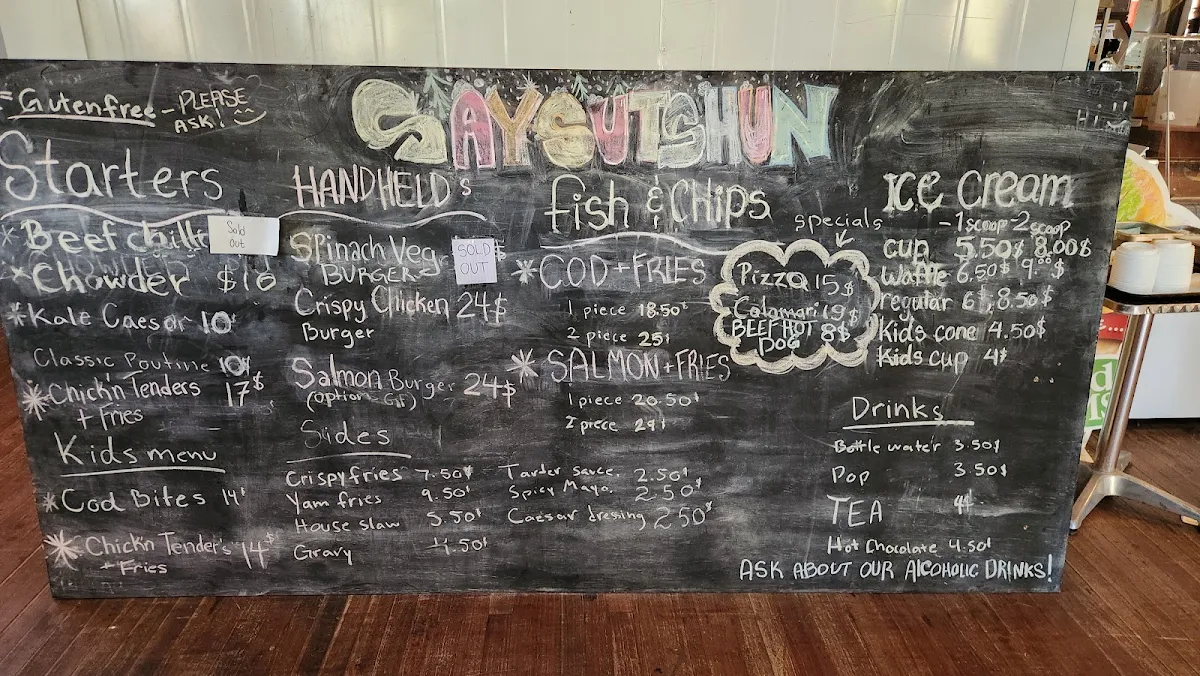 = Gutenfree - PLEASE
ASK!
SAYSUTSHUN
Hi!!
Starters
* Beef chilli
Sold
Out
* Chowder $10
* Kale Caesar 10$
Classic Poutine 10$
* Chick'n Tenders 17$
+ Fries
Kids menu
* Cod Bites 14$
* Chick'n Tender's 14$
+ Fries
HANDHELDs
Spinach Veg $
BURGER
SOLD
OUT
Crispy Chicken 24$
Burger
Salmon Burger 24$
(option GF)
Sides
Crispy fries 7.50$
Yam fries 9.50$
House slaw 5.50$
Gravy 4.50$
fish & Chips
* COD + FRIES
1 piece 18.50$
2 piece 25$
* SALMON + FRIES
1 piece 20.50$
2 piece 29$
Tarder sauce. 2.50$
Spicy Mayo. 2.50$
Caesar dressing 2.50$
specials
Pizza 15$
Calamari 19$
BEEF HOT 8$
DOG
Ice Cream
- 1 scoop - 2 scoop
cup 5.50$ 8.00$
Waffle 6.50$ 9.00$
regular 6$, 8.50$
Kids cone 4.50$
Kids cup 4$
Drinks
Bottle water 3.50$
Pop 3.50$
TEA 4$
Hot Chocolate 4.50$
ASK ABOUT OUR AlCOHOLIC DRINKS!